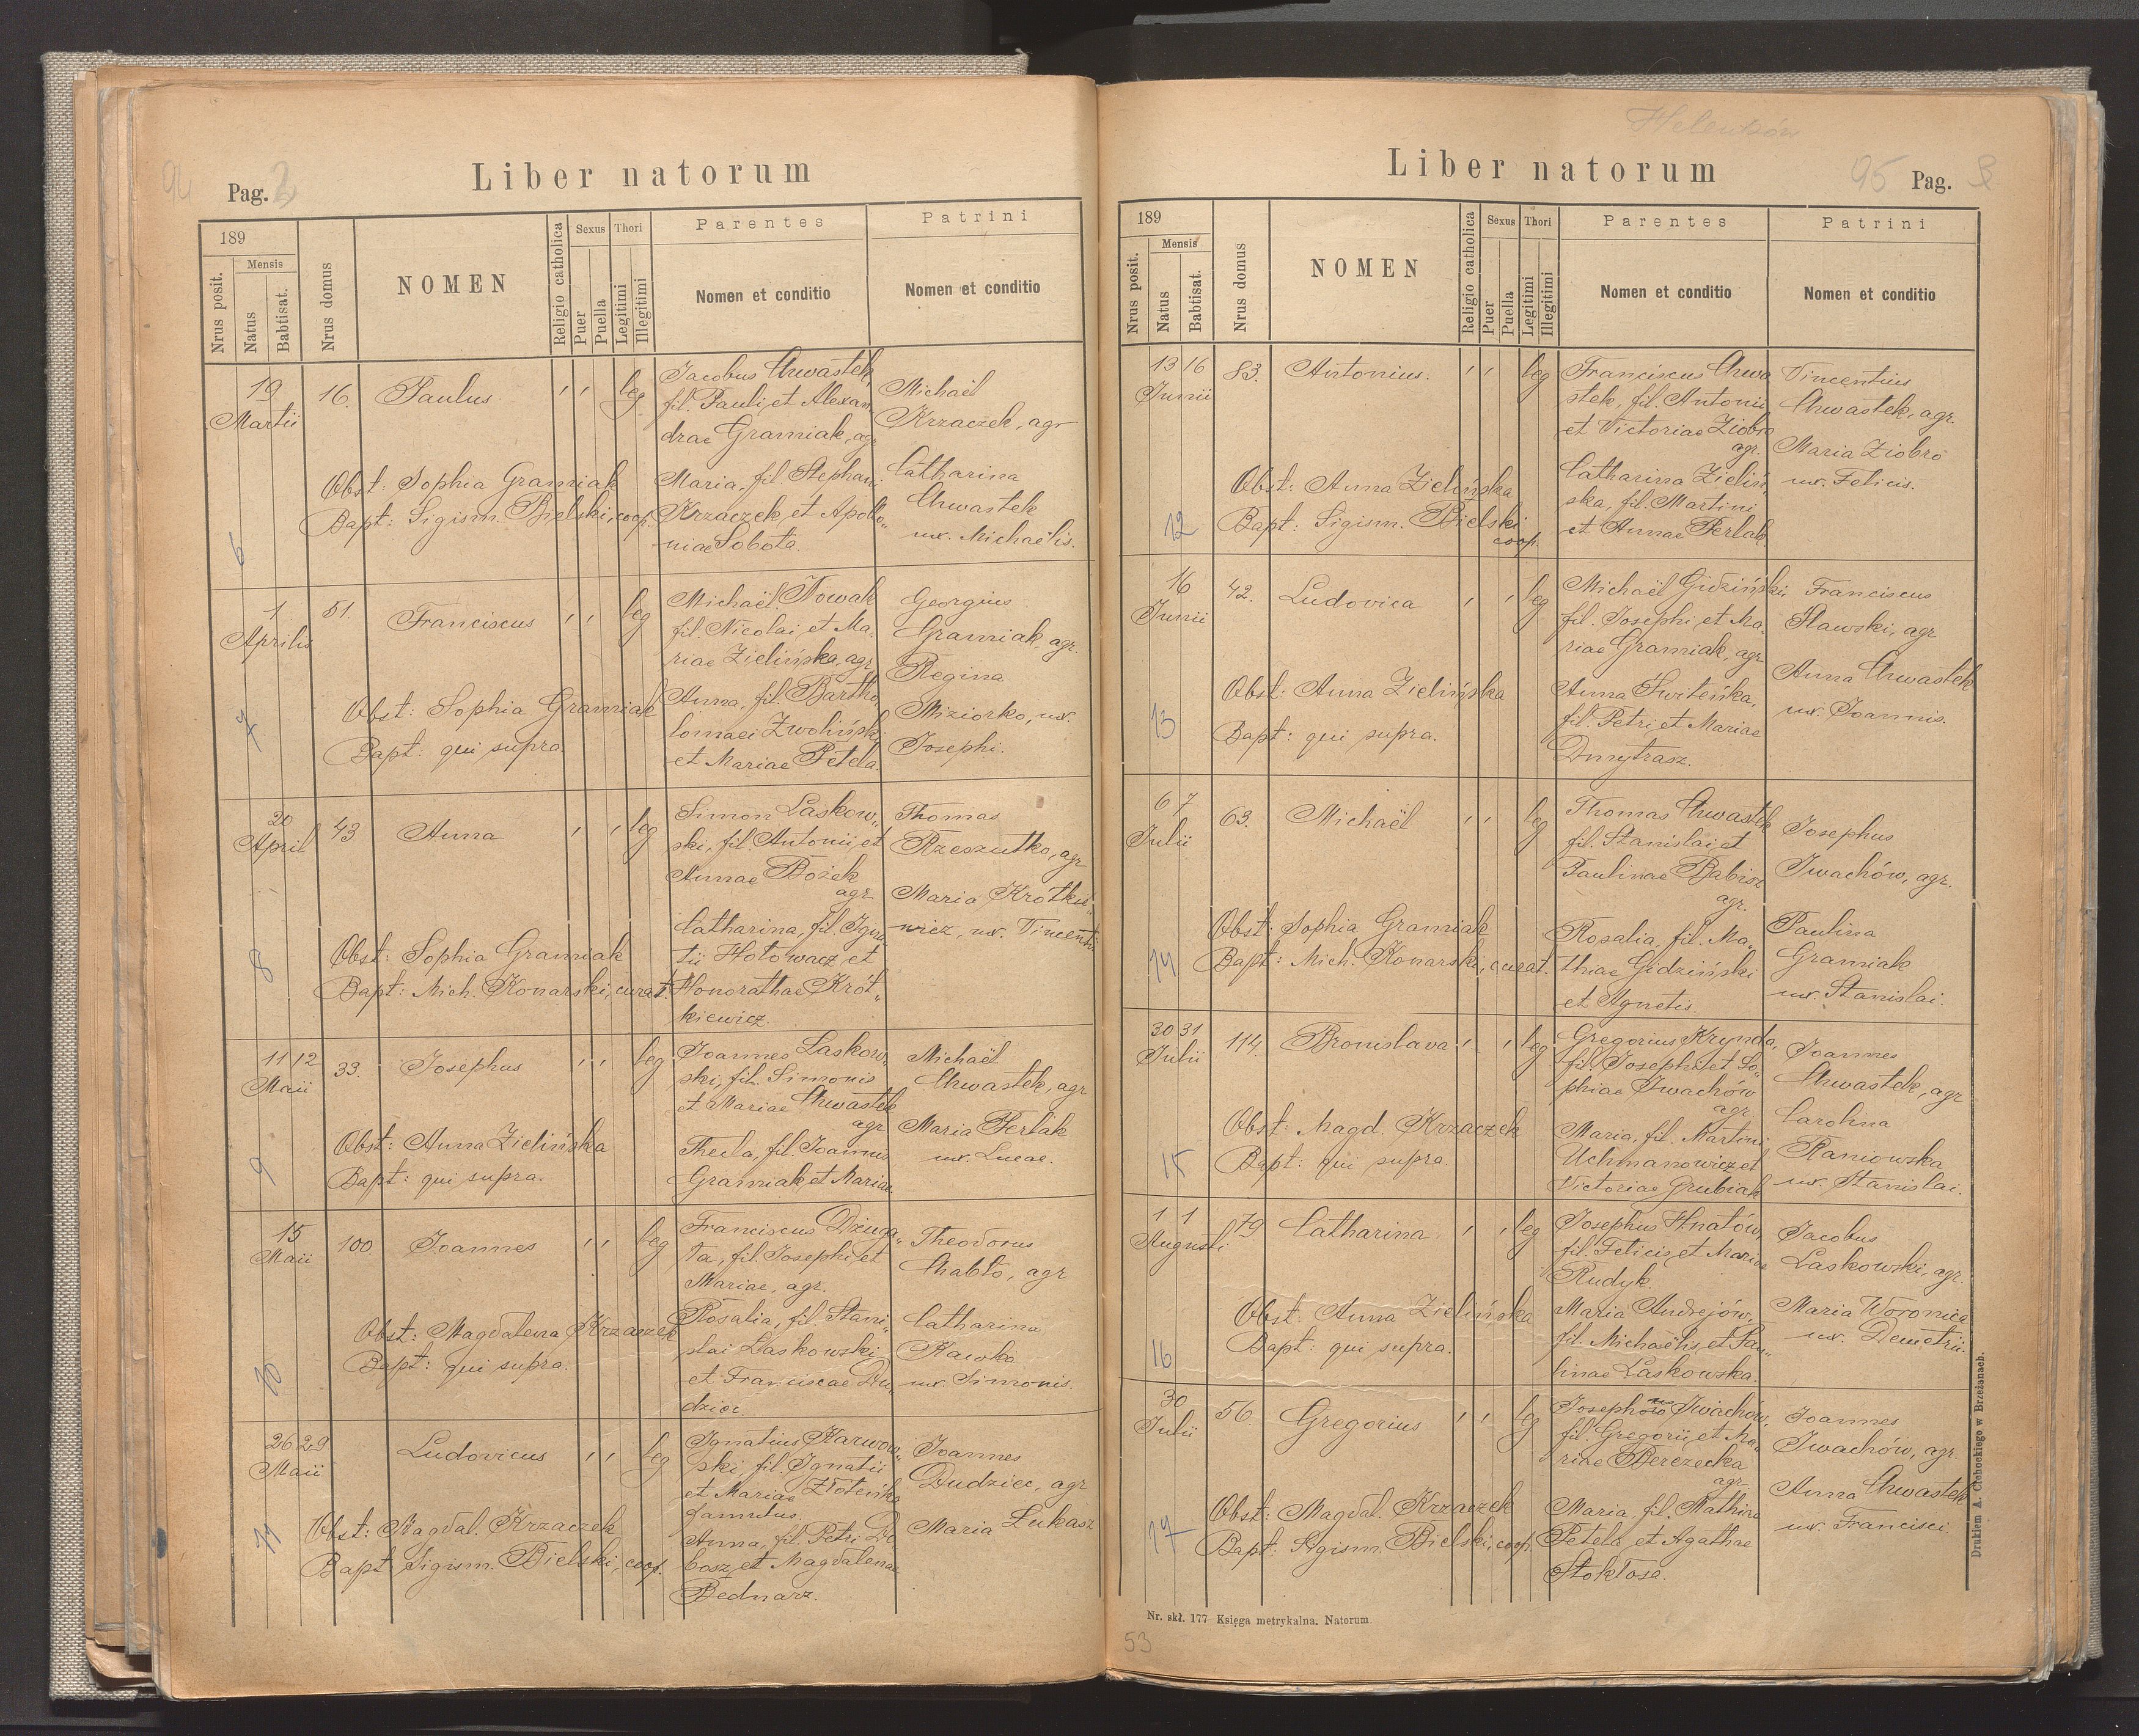 94
Pag. 2
Liber natorum
189
Nrus posit.
Mensis
Natus
Babtisat.
Nrus domus
NOMEN
Religio catholica
Sexus
Puer
Puella
Thori
Legitimi
Illegitimi
Parentes
Nomen et conditio
Patrini
Nomen et conditio
6
19
Martii
16.
Paulus
leg
Jacobus Chwastek,
fil. Pauli et Alexan„
drae Gramiak, agr
Maria, fil. Stephani
Krzaczek, et Apollo„
niae Sobota.
Michaël
Krzaczek, agr
Catharina
Chwastek
ux. Michaëlis.
Obst: Sophia Gramiak
Bapt: Sigism. Bielski, coop.
7
1
Aprilis
51.
Franciscus
leg
Michaël Nowak
fil. Nicolai et Ma„
riae Zielińska, agr
Anna, fil. Bartho„
lomaei Zwoliński
et Mariae Petela.
Georgius
Gramiak, agr.
Regina
Miziorko, ux.
Josephi.
Obst: Sophia Gramiak
Bapt: qui supra.
8
20
April
43
Anna
leg
Simon Laskow„
ski, fil. Antonii et
Annae Bożek
agr
Catharina, fil. Igna„
tii Hołowacz et
Honorathae Krót„
kiewicz
Thomas
Rzeszutko, agr
Maria Krótkie„
wicz, ux. Vincentii
Obst: Sophia Gramiak
Bapt: Mich. Konarski, curat.
9
11 12
Maii
33.
Josephus
leg
Joannes Laskow„
ski, fil. Simonis
et Mariae Chwastek
agr
Thecla, fil. Joannis
Gramiak et Mariae
Michaël
Chwastek, agr
Maria Perlak
ux. Lucae.
Obst: Anna Zielińska
Bapt: qui supra.
10
15
Maii
100.
Joannes
leg
Franciscus Dziuga„
ła, fil. Josephi et
Mariae, agr.
Rosalia, fil. Stani„
slai Laskowski
et Franciscae Du„
dziec.
Theodorus
Chabło, agr
Catharina
Kawka
ux. Simonis.
Obst: Magdalena Krzaczek
Bapt: qui supra.
11
26 29
Maii
Ludovicus
leg
Ignatius Karwow„
ski, fil. Ignatii
et Mariae Złoteńka
famulus.
Anna, fil. Petri
bosz et Magdalenae
Bednarz.
Joannes
Dudziec, agr
Maria Lukasz
Obst: Magdal. Krzaczek
Bapt: Sigism. Bielski, coop.
Helenków
Liber natorum
95
Pag. 3
189
Nrus posit.
Mensis
Natus
Babtisat.
Nrus domus
NOMEN
Religio catholica
Sexus
Puer
Puella
Thori
Legitimi
Illegitimi
Parentes
Nomen et conditio
Patrini
Nomen et conditio
12
13 16
Junii
83.
Antonius.
leg
Franciscus Chwa
stek, fil. Antonii
et Victoriae Ziobro
agr.
Catharina Zieliń„
ska, fil. Martini
et Annae Perlak.
Vincentius
Chwastek, agr.
Maria Ziobro
ux. Felicis.
Obst: Anna Zielińska
Bapt: Sigism. Bielski
coop.
13
16
Junii
42.
Ludovica
leg
Michaël Gidziński,
fil. Josephi et Ma„
riae Gramiak, agr
Anna Switeńka,
fil. Petri et Mariae
Dmytrasz.
Franciscus
Sławski, agr
Anna Chwastek
ux. Joannis.
Obst: Anna Zielińska
Bapt: qui supra.
14
6 7
Julii
63.
Michaël
leg
Thomas Chwastek
fil. Stanislai et
Paulinae Babisz
agr.
Rosalia, fil. Ma„
thiae Gidziński
et Agnetis.
Josephus
Iwachów, agr.
Paulina
Gramiak
ux. Stanislai.
Obst: Sophia Gramiak
Bapt: Mich. Konarski, curat.
15
30 31
Julii
114.
Bronislava
leg
Gregorius Krynda,
fil. Josephi et So„
phiae Iwachów
agr
Maria, fil. Martini
Uchmanowicz et
Victoriae Grubiak
Joannes
Chwastek, agr
Carolina
Raniowska
ux. Stanislai.
Obst: Magd. Krzaczek
Bapt: qui supra.
16
1 1
Augusti
79
Catharina
leg
Josephus Hnatów,
fil. Felicis et Mariae
Rudyk
Maria Andrejów,
fil. Michaëlis et Pau„
linae Laskowska.
Jacobus
Laskowski, agr.
Maria Woronica
ux. Demetrii.
Obst: Anna Zielińska
Bapt: qui supra.
17
30
Julii
56.
Gregorius
leg
Josephus Iwachów,
fil. Gregorii et Ma„
riae Berezecka
agr
Maria, fil. Mathiae
Petela et Agathae
Stokłosa.
Joannes
Iwachów, agr.
Anna Chwastek
ux. Francisci.
Obst: Magdal. Krzaczek
Bapt: Sigism. Bielski, coop.
Drukiem A. Cichockiego w Brzeżanach.
Nr. skł. 177 Księga metrykalna. Natorum.
53